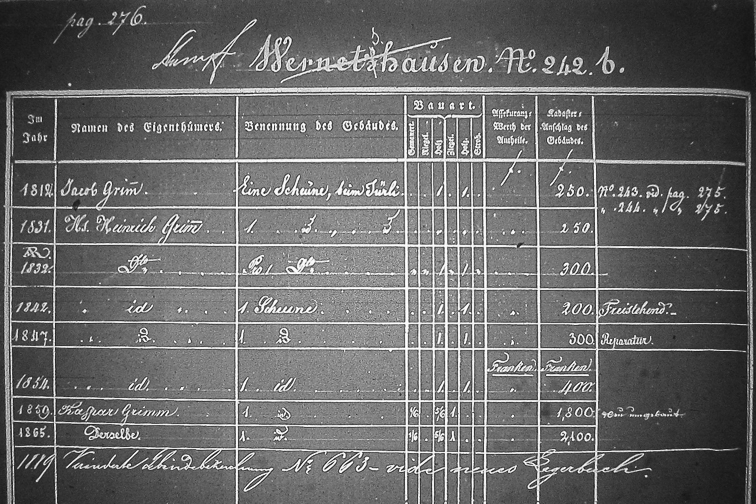 pag. 276.
Wernetshausen. No. 242. b.
Im Jahr
Namen des Eigenthümers.
Benennung des Gebäudes.
Bauart.
Gemauert. Riegel. Holz Ziegel. Holz. Stroh.
Assekuranz-Werth der Antheile.
Kadaster-Anschlag des Gebäudes.
1812. Jacob Grim̄. Eine Scheune, beim Türli 1. 1. 250. No. 243. vid. pag. 275.
" 244. " " 275.
1831. Hs. Heinrich Grim̄ 1. 250.
1832. Do. 1 Do. 1 1. 300.
1842. id 1. Scheune. 1. 1. 200. Freistehend.
1847. 1. 1 1. 300. Reparatur.
Franken. Franken.
1854. id. 1. id. 1. 1. 400.
1859. Kaspar Grimm. 1. 1/6 5/6 1. 1,800. neu umgebaut
1865. Derselbe. 1. 1/6 5/6 1 2,100.
1889 No. 663 - vide neues Lagerbuch.